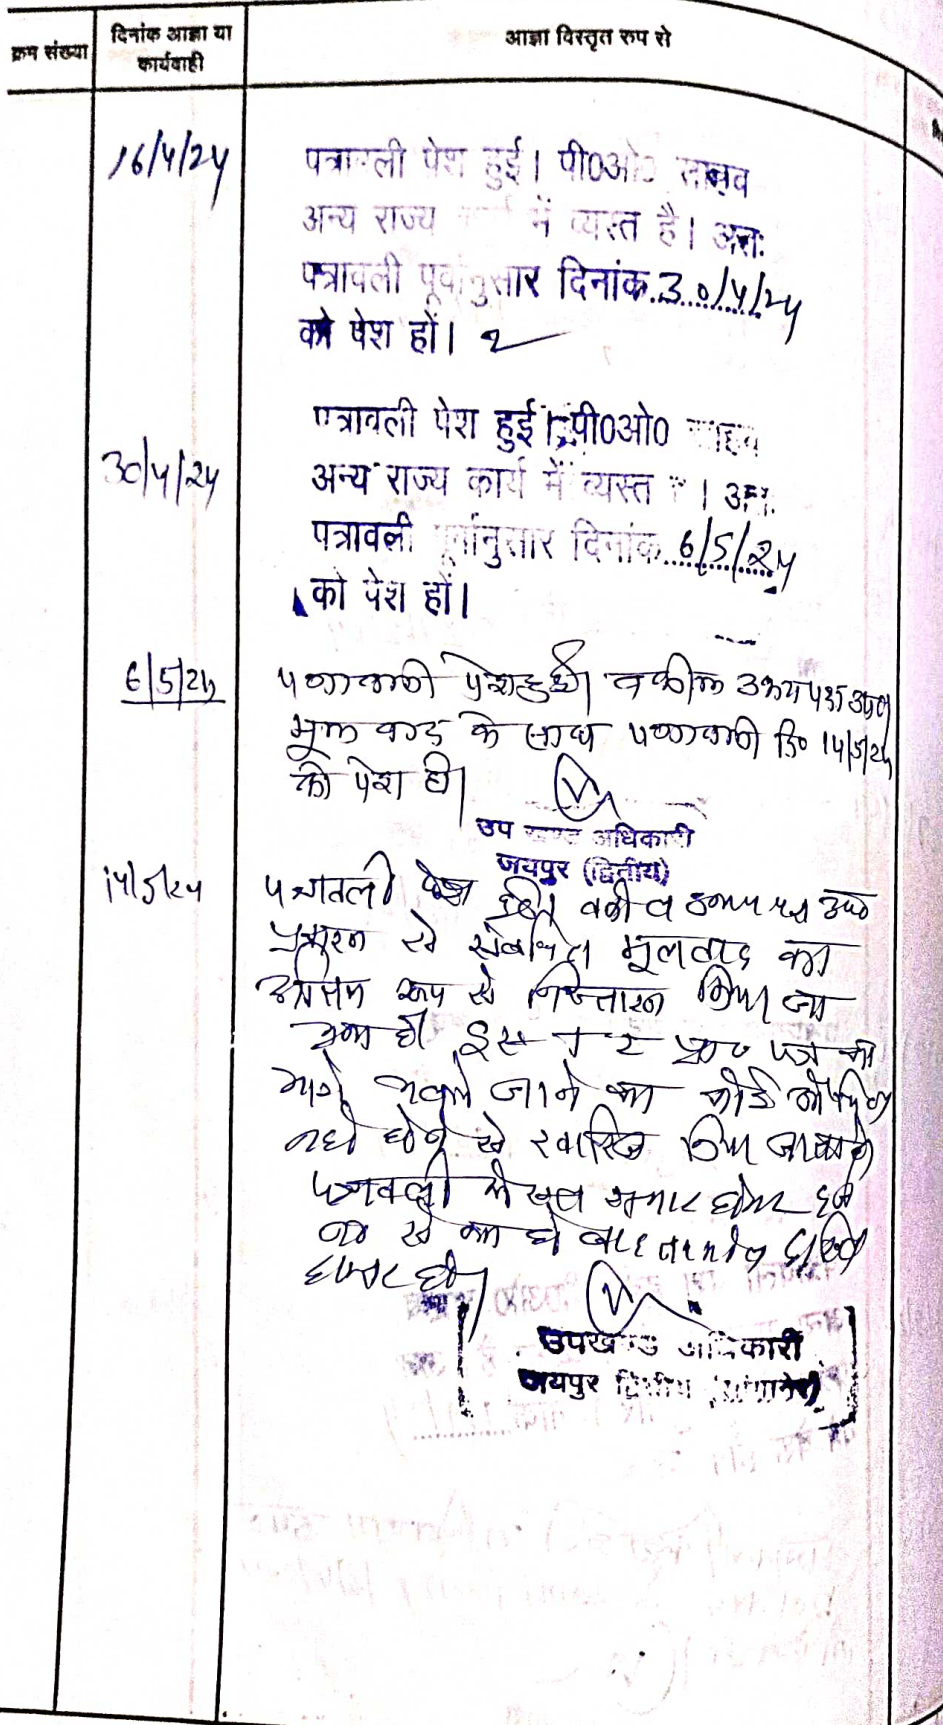 क्रम संख्या
दिनांक आज्ञा या
कार्यवाही
आज्ञा विस्तृत रुप से
16/4/24
पत्रावली पेश हुई। पी0ओ0 साहब
अन्य राज्य कार्य में व्यस्त है। अतः
पत्रावली पूर्वानुसार दिनांक 30/4/24
को पेश हों।
30/4/24
पत्रावली पेश हुई। पी0ओ0 साहब
अन्य राज्य कार्य में व्यस्त है। अतः
पत्रावली पूर्वानुसार दिनांक 6/5/24
को पेश हों।
6/5/24
पत्रावली पेश हुई। वकील उभय पक्ष उप0
मूल वाद के साथ पत्रावली दि0 14/5/24
को पेश हो।
उप खण्ड अधिकारी
जयपुर (द्वितीय)
14/5/24
पत्रावली पेश हुई। वकील उभय पक्ष उप0
प्रकरण से संबंधित मूलवाद का
अंतिम रूप से निस्तारण किया जा
चुका है। इस प्रा0 पत्र को
आगे चलाये जाने का कोई औचित्य
नहीं होने से खारिज किया जाता है।
पत्रावली फैसल शुमार होकर
नम्बर से कम हो बाद तकमील दाखिल
दफ्तर हो।
उपखण्ड अधिकारी
जयपुर द्वितीय (सांगानेर)